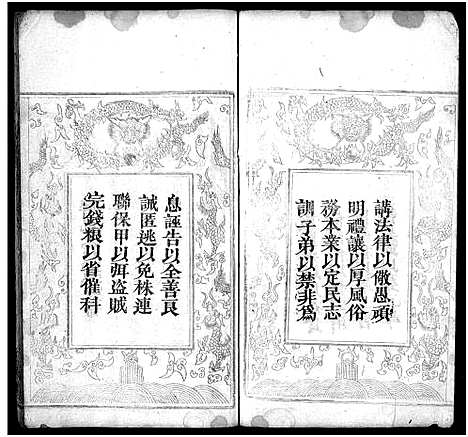 講法律以儆愚頑
明禮讓以厚風俗
務本業以定民志
訓子弟以禁非為
息誣告以全善良
誡匿逃以免株連
聯保甲以弭盜賊
完錢粮以省催科